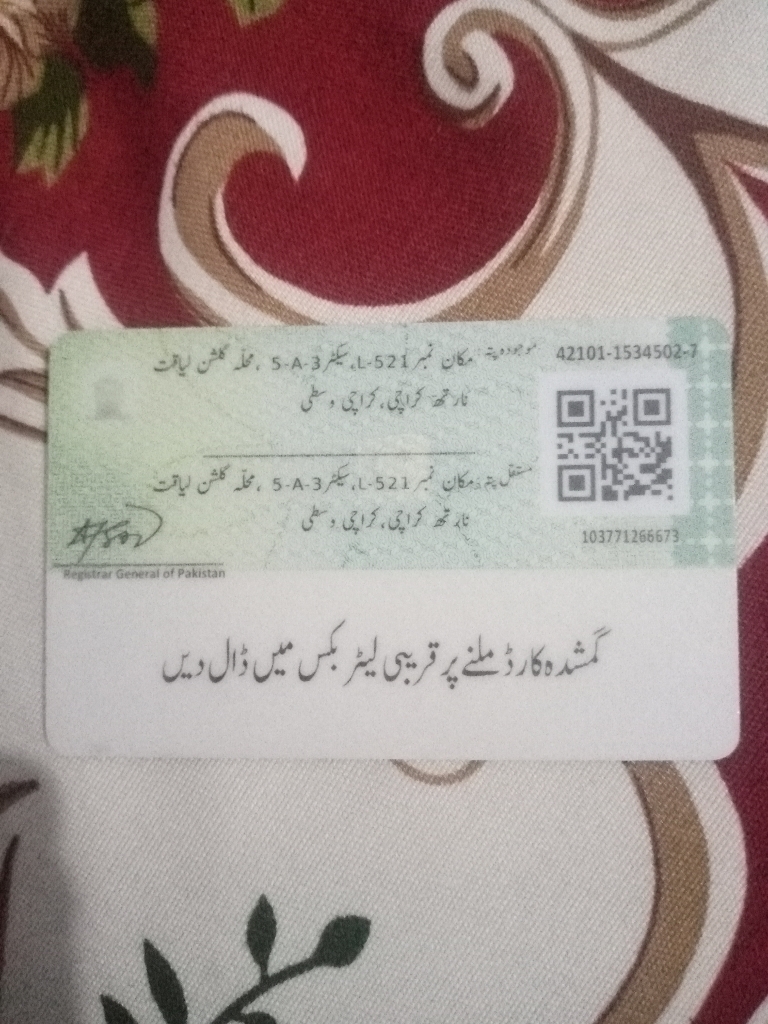 موجودہ پتہ: مکان نمبر L-521، سیکٹر 5-A-3، محلّہ گلشن لیاقت
نارتھ کراچی، کراچی وسطی
42101-1534502-7
مستقل پتہ: مکان نمبر L-521، سیکٹر 5-A-3، محلّہ گلشن لیاقت
نارتھ کراچی، کراچی وسطی
103771266673
Registrar General of Pakistan
گمشدہ کارڈ ملنے پر قریبی لیٹر بکس میں ڈال دیں